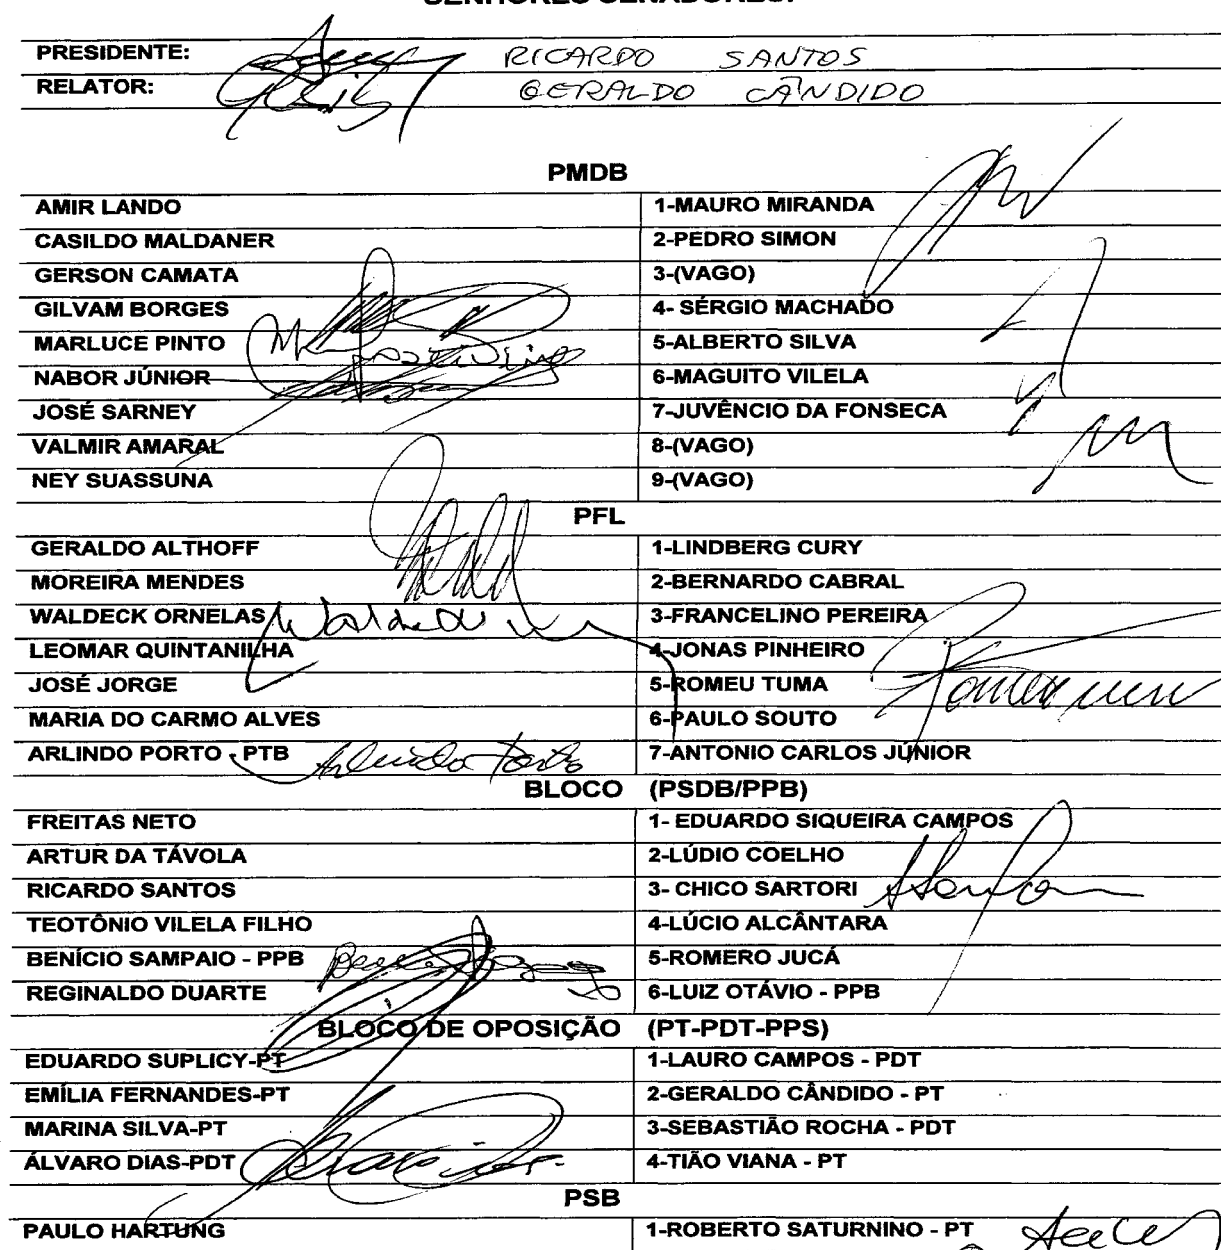 SENHORES SENADORES:
PRESIDENTE: RICARDO SANTOS
RELATOR: GERALDO CÂNDIDO
PMDB
AMIR LANDO 1-MAURO MIRANDA
CASILDO MALDANER 2-PEDRO SIMON
GERSON CAMATA 3-(VAGO)
GILVAM BORGES 4- SÉRGIO MACHADO
MARLUCE PINTO 5-ALBERTO SILVA
NABOR JÚNIOR 6-MAGUITO VILELA
JOSÉ SARNEY 7-JUVÊNCIO DA FONSECA
VALMIR AMARAL 8-(VAGO)
NEY SUASSUNA 9-(VAGO)
PFL
GERALDO ALTHOFF 1-LINDBERG CURY
MOREIRA MENDES 2-BERNARDO CABRAL
WALDECK ORNELAS Waldeck 3-FRANCELINO PEREIRA
LEOMAR QUINTANILHA 4-JONAS PINHEIRO
JOSÉ JORGE 5-ROMEU TUMA
MARIA DO CARMO ALVES 6-PAULO SOUTO
ARLINDO PORTO - PTB Arlindo Porto 7-ANTONIO CARLOS JÚNIOR
BLOCO (PSDB/PPB)
FREITAS NETO 1- EDUARDO SIQUEIRA CAMPOS
ARTUR DA TÁVOLA 2-LÚDIO COELHO
RICARDO SANTOS 3- CHICO SARTORI
TEOTÔNIO VILELA FILHO 4-LÚCIO ALCÂNTARA
BENÍCIO SAMPAIO - PPB 5-ROMERO JUCÁ
REGINALDO DUARTE 6-LUIZ OTÁVIO - PPB
BLOCO DE OPOSIÇÃO (PT-PDT-PPS)
EDUARDO SUPLICY-PT 1-LAURO CAMPOS - PDT
EMÍLIA FERNANDES-PT 2-GERALDO CÂNDIDO - PT
MARINA SILVA-PT 3-SEBASTIÃO ROCHA - PDT
ÁLVARO DIAS-PDT 4-TIÃO VIANA - PT
PSB
PAULO HARTUNG 1-ROBERTO SATURNINO - PT